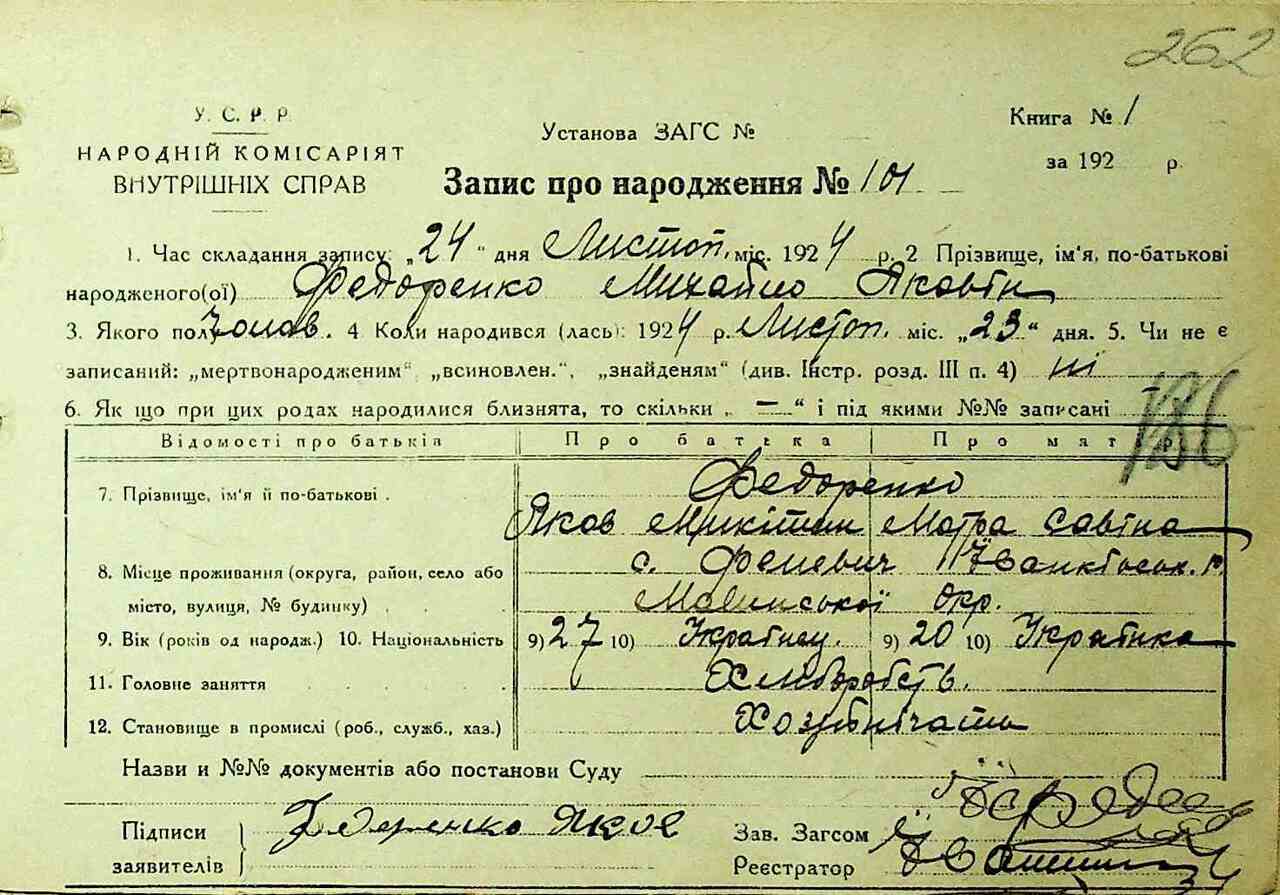 262
У. С. Р. Р.
НАРОДНІЙ КОМІСАРІЯТ
ВНУТРІШНІХ СПРАВ
Установа ЗАГС №
Книга № 1
за 192 р.
Запис про народження № 101
1. Час складання запису: „24“ дня Листоп. міс. 1924 р. 2 Прізвище, ім'я, по-батькові
народженого(ої) Федоренко Михайло Яковін
3. Якого полу чолов. 4 Коли народився (лась): 1924 р. Листоп. міс. „23“ дня. 5. Чи не є
записаний: „мертвонародженим“ „всиновлен.“, „знайденям“ (див. Інстр. розд. III п. 4) ні
6. Як що при цих родах народилися близнята, то скільки „ — “ і під якими №№ записані
Відомості про батьків Про батька Про матір
7. Прізвище, ім'я й по-батькові . Федоренко
Яков Микітин Мотра Савіна
8. Місце проживання (округа, район, село або с. Феневич
місто, вулиця, № будинку) . . . Малинської окр.
9. Вік (років од народж.) 10. Національність 9) 27 10) Українец. 9) 20 10) Українка
11. Головне заняття . . . . . Хліборобств.
12. Становище в промислі (роб., служб., хаз.)
Назви и №№ документів або постанови Суду
Підписи
заявителів
Федоренко Яков
Зав. Загсом
Реєстратор